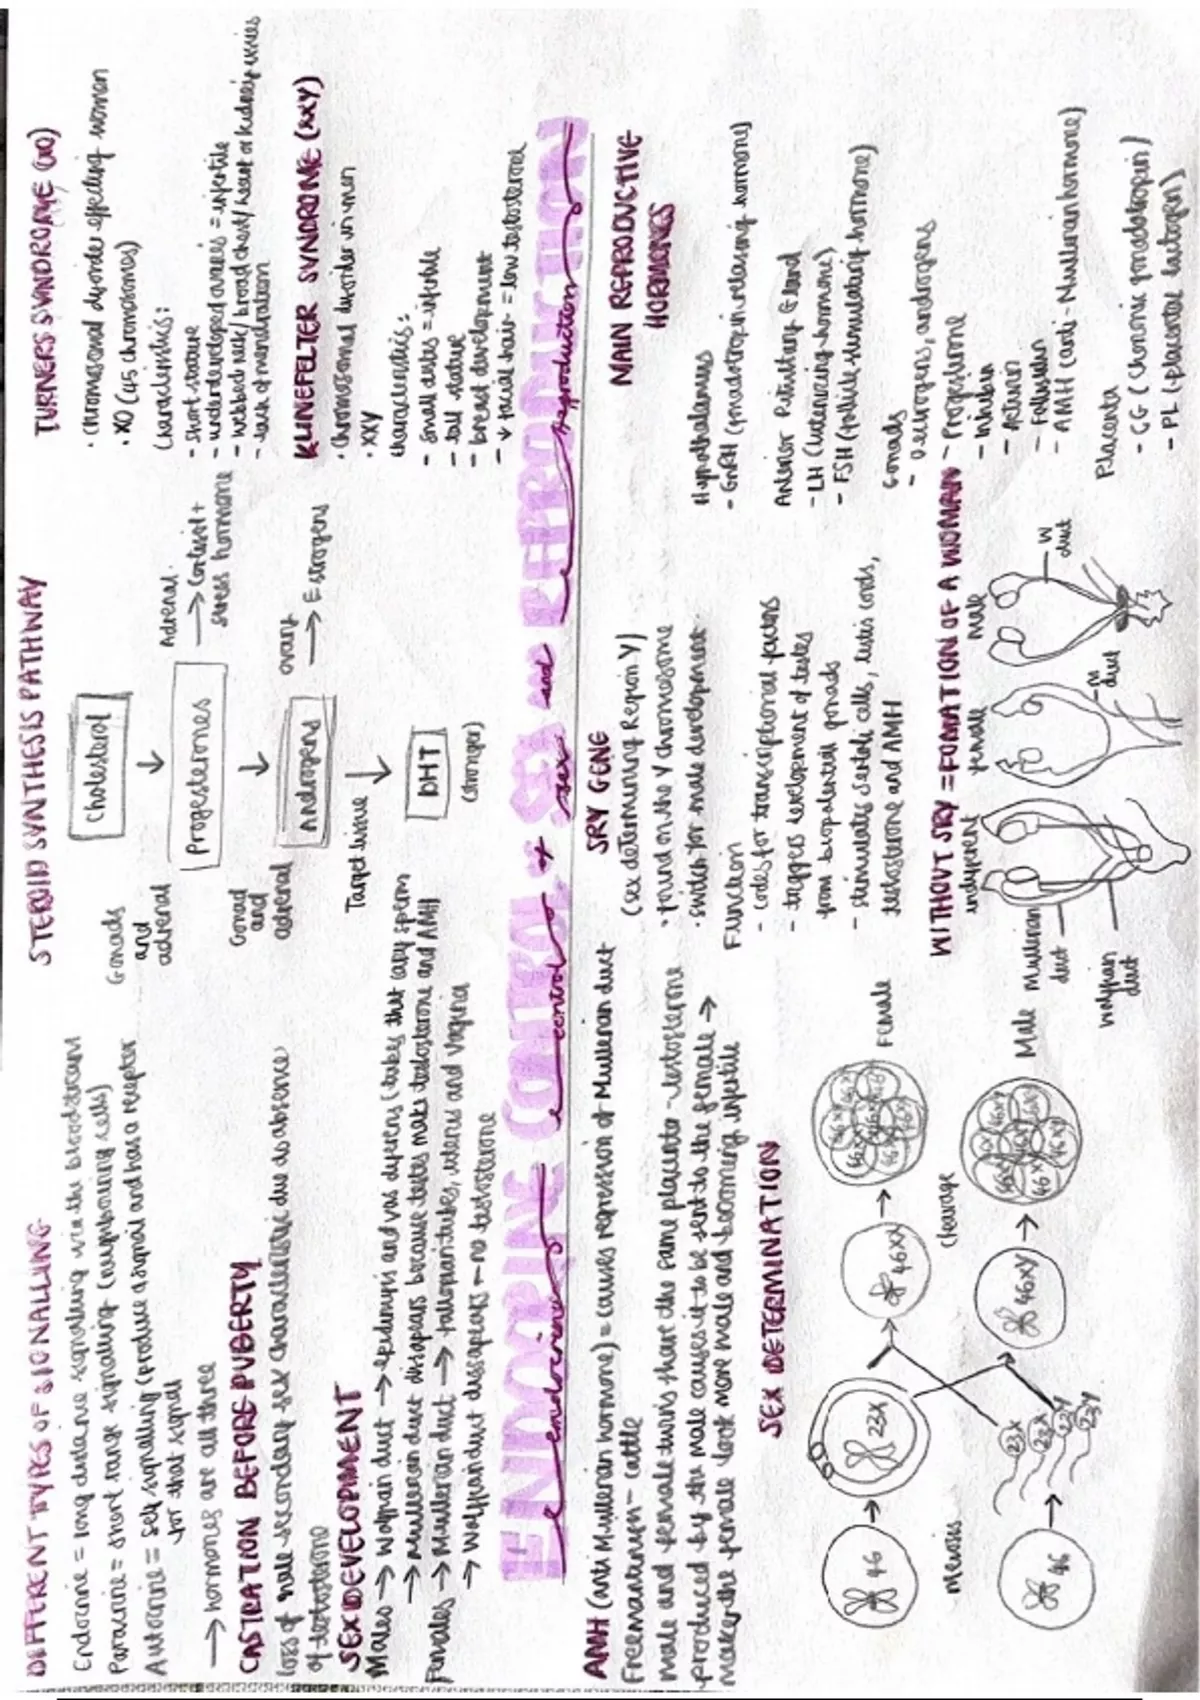 DIFFERENT TYPES OF SIGNALLING
Endocrine = long distance signalling via the bloodstream
Paracrine = short range signalling (neighbouring cells)
Autocrine = self signalling (produce a signal and has a receptor
for that signal
→ hormones are all three
CASTRATION BEFORE PUBERTY
loss of male secondary sex characteristic due to absence
of testosterone
SEX DEVELOPMENT
Males → Wolffian duct → epididymis and vas deferens (tubes that carry sperm
→ Mullerian duct disapears because testes make testosterone and AMH
Females → Mullerian duct → fallopian tubes, uterus and vagina
→ Wolffian duct dissapears - no testosterone
STEROID SYNTHESIS PATHWAY
Cholesterol
Gonads
and
adrenal
Progesterones
Adrenal
→ Cortisol +
stress hormone
Gonad
and
adrenal
Androgend
ovary
→ Estrogens
Target tissue
DHT
(stronger)
TURNERS SYNDROME (XO)
• Chromosomal dysorder effecting women
• XO (45 chromosomes)
Characteristics:
- short stature
- underdeveloped ovaries = infertile
- webbed neck/ broad chest/ heart or kidney issues
- lack of menstration
KLINEFELTER SYNDROME (XXY)
• Chromosomal disorder in men
• XXY
characteristics:
- small testes = infertile
- tall stature
- breast development
- ↓ facial hair = low testosterol
ENDOCRINE CONTROL + SEX and REPRODUCTION
endocrine control sex reproduction
AMH (anti Mullerian hormone) = causes regression of Mullerian duct
Freemantenism - cattle
Male and female twins share the same placenta - testosterone
produced by the male causes it to be sent to the female →
makes the female look more male and becoming infertile
SEX DETERMINATION
46
23X
46XX
46XX
Female
Meiosis
Cleavage
46
23X
23X
23Y
23Y
46XY
46XY
Male
SRY GENE
(sex determining Region Y)
• found on the Y chromosome
• switch for male development
Function
- codes for transcriptional factors
- triggers development of testes
from bipotential gonads
- stimulates sertoli cells, testis cords,
testosterone and AMH
WITHOUT SRY = FOMATION OF A WOMAN
indifferent
female
male
Mullerian
duct
Wolffian
duct
M
duct
W
duct
MAIN REPRODUCTIVE
HORMONES
Hypothalamus
- GnRH (gonadotropin releasing hormone)
Anterior Pituitary Gland
- LH (luteinizing hormone)
- FSH (follicle stimulating hormone)
Gonads
- oestrogens, androgens
- Progesterone
- Inhibin
- Activin
- Follistatin
- AMH (anti-Mullerian hormone)
Placenta
- CG (Chorionic gonadotropin)
- PL (placental lactogen)